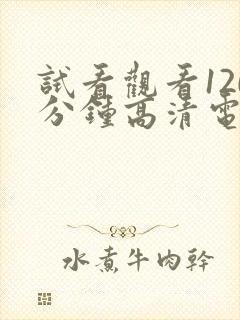 試看觀看120
分鐘高清電
水煮牛肉幹